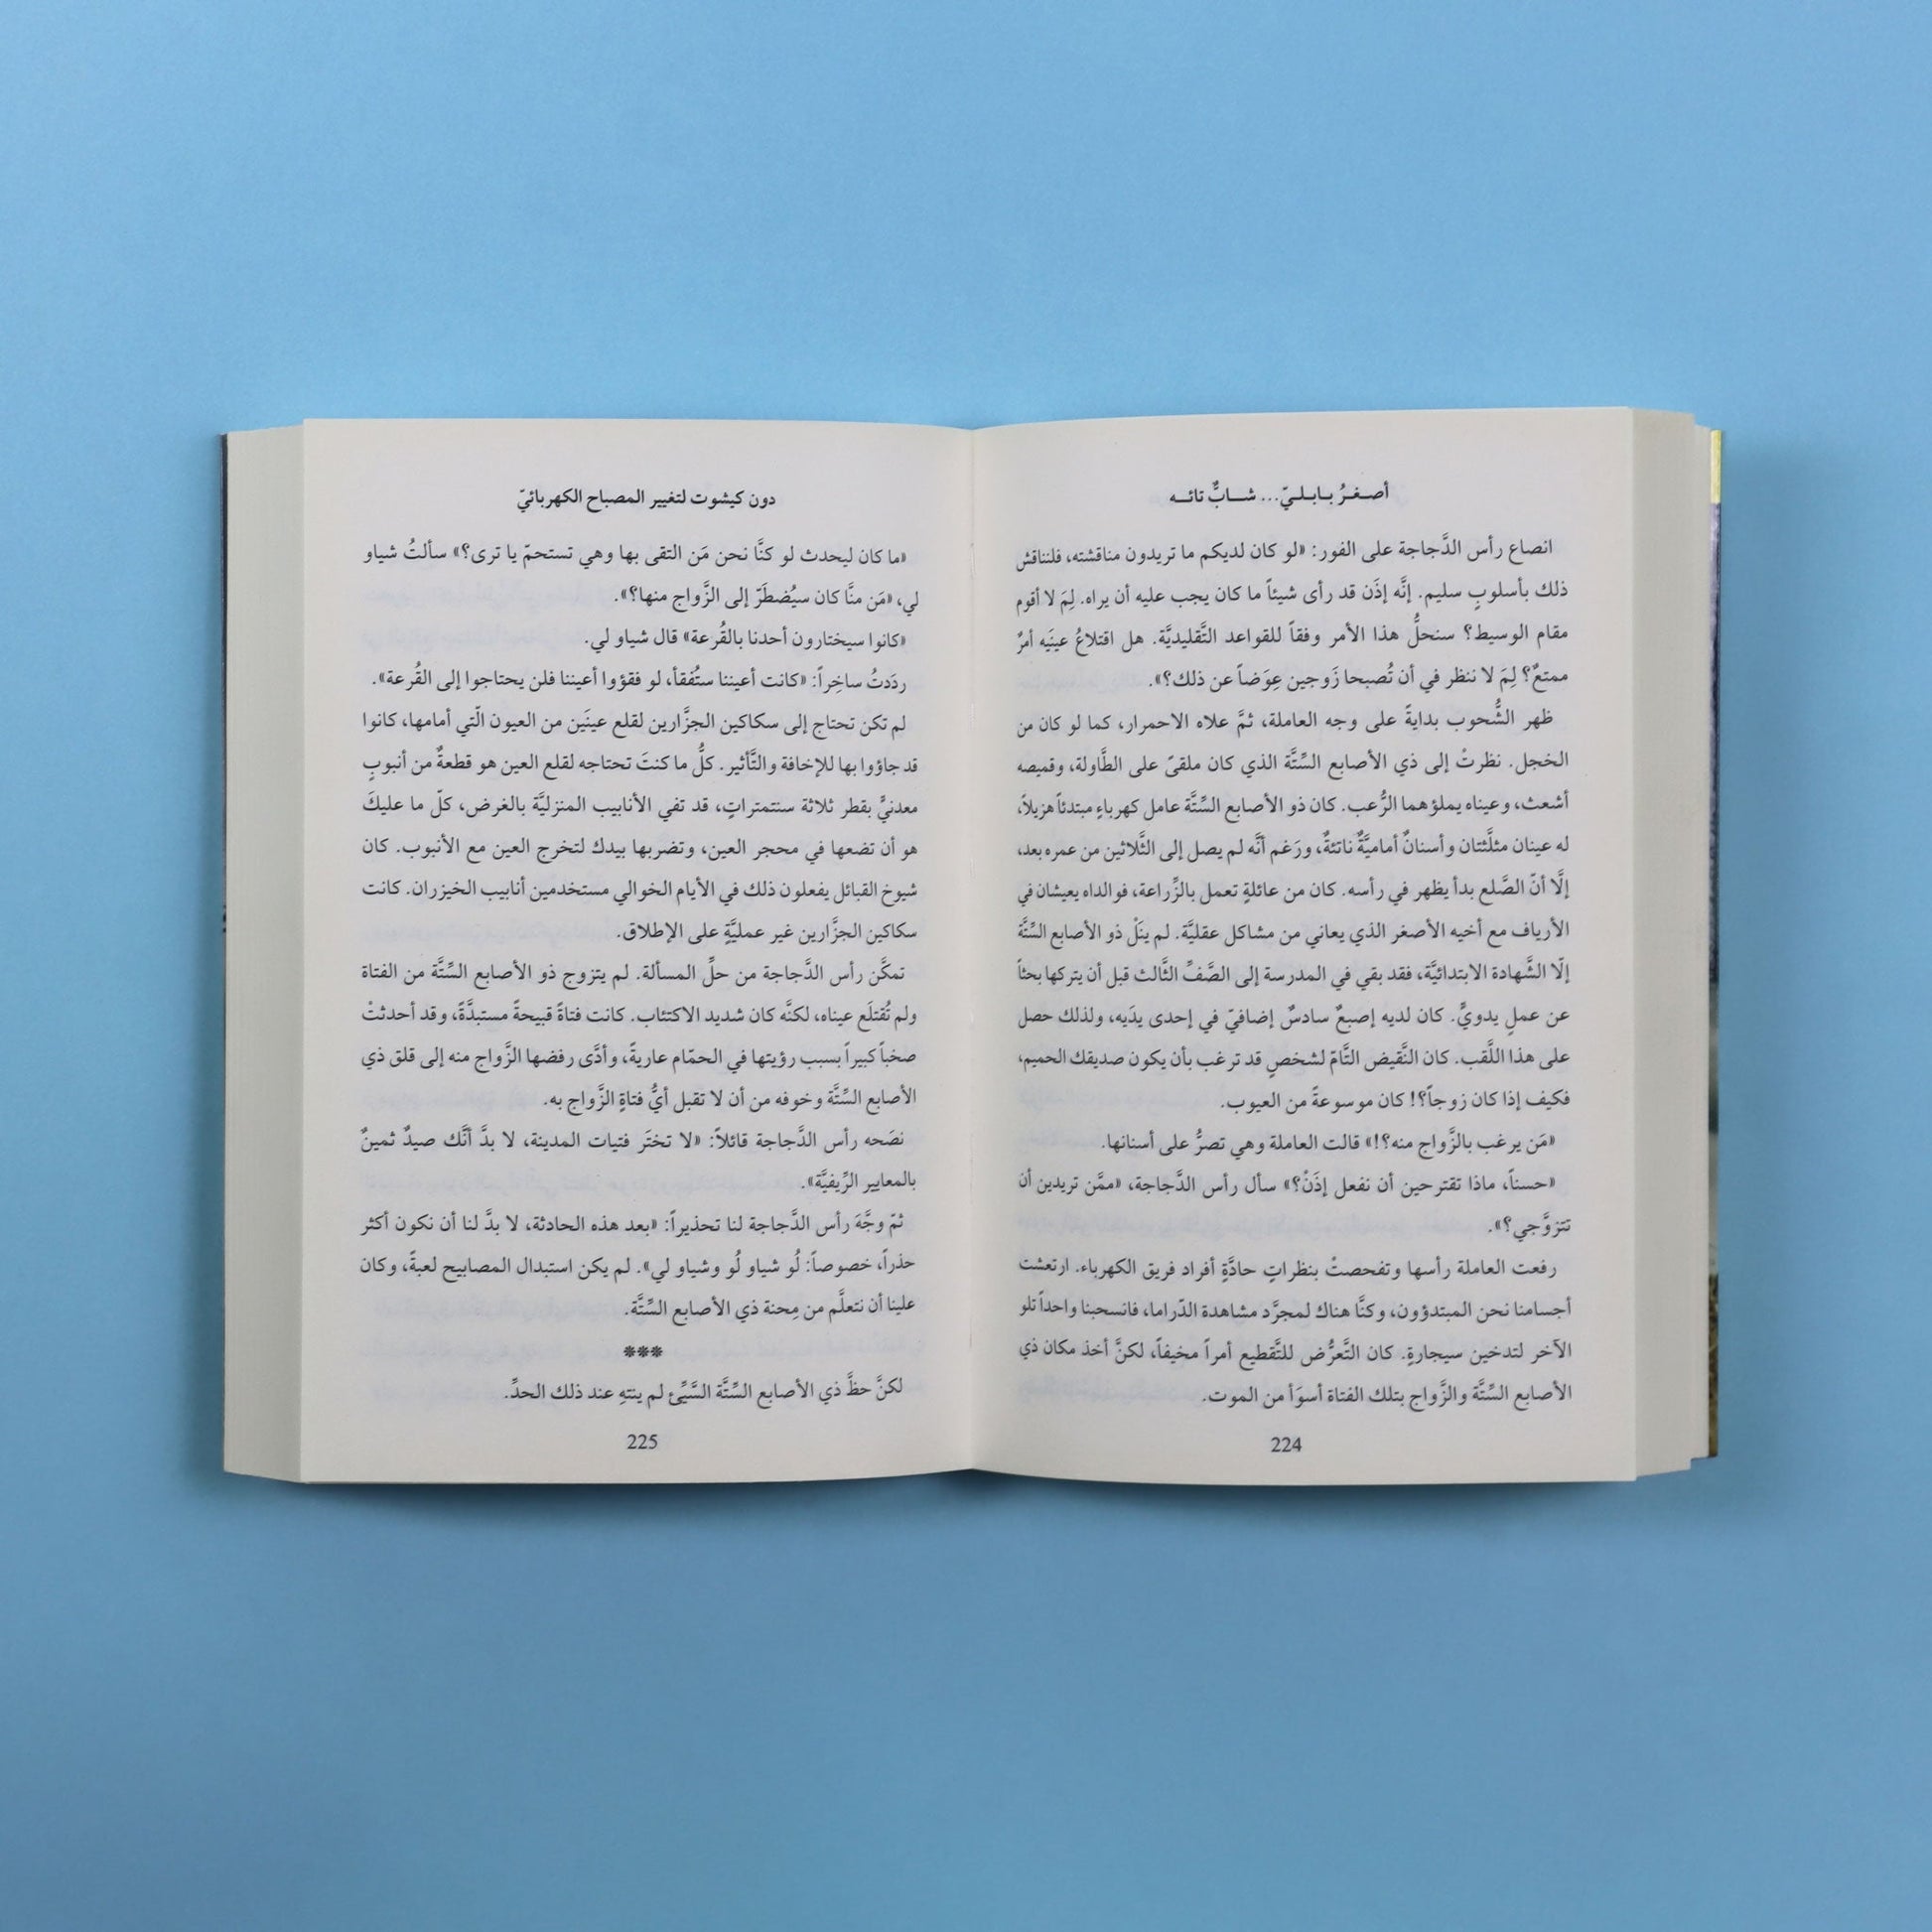 أصغرُ بابليّ... شابٌّ تائه
انصاع رأس الدَّجاجة على الفور: «لو كان لديكم ما تريدون مناقشته، فلنناقش
ذلك بأسلوبٍ سليم. إنَّه إذَن قد رأى شيئاً ما كان يجب عليه أن يراه. لِمَ لا أقوم
مقام الوسيط؟ سنحلُّ هذا الأمر وفقاً للقواعد التَّقليديَّة. هل اقتلاعُ عينَيه أمرٌ
ممتعٌ؟ لِمَ لا ننظر في أن تُصبحا زَوجين عِوَضاً عن ذلك؟».
ظهر الشُّحوب بدايةً على وجه العاملة، ثمَّ علاه الاحمرار، كما لو كان من
الخجل. نظرتْ إلى ذي الأصابع السِّتَّة الذي كان ملقىً على الطَّاولة، وقميصه
أشعث، وعيناه يملؤهما الرُّعب. كان ذو الأصابع السِّتَّة عامل كهرباءٍ مبتدئاً هزيلاً،
له عينان مثلَّثتان وأسنانٌ أماميَّةٌ ناتئةٌ، ورَغم أنَّه لم يصل إلى الثَّلاثين من عمره بعد،
إلَّا أنّ الصَّلع بدأ يظهر في رأسه. كان من عائلةٍ تعمل بالزِّراعة، فوالداه يعيشان في
الأرياف مع أخيه الأصغر الذي يعاني من مشاكل عقليَّة. لم ينَلْ ذو الأصابع السِّتَّة
إلّا الشَّهادة الابتدائيَّة، فقد بقي في المدرسة إلى الصَّفِّ الثَّالث قبل أن يتركها بحثاً
عن عملٍ يدويٍّ. كان لديه إصبعٌ سادسٌ إضافيّ في إحدى يدَيه، ولذلك حصل
على هذا اللَّقب. كان النَّقيض التَّامّ لشخصٍ قد ترغب بأن يكون صديقك الحميم،
فكيف إذا كان زوجاً؟! كان موسوعةً من العيوب.
«مَن يرغب بالزَّواج منه؟!» قالت العاملة وهي تصرُّ على أسنانها.
«حسناً، ماذا تقترحين أن نفعل إذَنْ؟» سأل رأس الدَّجاجة، «ممَّن تريدين أن
تتزوَّجي؟».
رفعت العاملة رأسها وتفحصتْ بنظراتٍ حادَّةٍ أفراد فريق الكهرباء. ارتعشت
أجسامنا نحن المبتدؤون، وكنَّا هناك لمجرَّد مشاهدة الدّراما، فانسحبنا واحداً تلو
الآخر لتدخين سيجارةٍ. كان التَّعرُّض للتَّقطيع أمراً مخيفاً، لكنَّ أخذ مكان ذي
الأصابع السِّتَّة والزَّواج بتلك الفتاة أسوَأ من الموت.
224
دون كيشوت لتغيير المصباح الكهربائيّ
«ما كان ليحدث لو كنَّا نحن مَن التقى بها وهي تستحمّ يا ترى؟» سألتُ شياو
لي، «مَن منَّا كان سيُضطَرّ إلى الزَّواج منها؟».
«كانوا سيختارون أحدنا بالقُرعة» قال شياو لي.
ردَدتُ ساخِراً: «كانت أعيننا ستُفقأ، لو فقؤوا أعيننا فلن يحتاجوا إلى القُرعة».
لم تكن تحتاج إلى سكاكين الجزَّارين لقلع عينَين من العيون الّتي أمامها، كانوا
قد جاؤوا بها للإخافة والتَّأثير. كلُّ ما كنتَ تحتاجه لقلع العين هو قطعةٌ من أنبوبٍ
معدنيٍّ بقطر ثلاثة سنتمتراتٍ، قد تفي الأنابيب المنزليَّة بالغرض، كلّ ما عليكَ
هو أن تضعها في محجر العين، وتضربها بيدك لتخرج العين مع الأنبوب. كان
شيوخ القبائل يفعلون ذلك في الأيام الخوالي مستخدمين أنابيب الخيزران. كانت
سكاكين الجزَّارين غير عمليَّةٍ على الإطلاق.
تمكَّن رأس الدَّجاجة من حلِّ المسألة. لم يتزوج ذو الأصابع السِّتَّة من الفتاة
ولم تُقتلَع عيناه، لكنَّه كان شديد الاكتئاب. كانت فتاةً قبيحةً مستبدَّةً، وقد أحدثتْ
صخباً كبيراً بسبب رؤيتها في الحمّام عاريةً، وأدَّى رفضها الزَّواج منه إلى قلق ذي
الأصابع السِّتَّة وخوفه من أن لا تقبل أيُّ فتاةٍ الزَّواج به.
نصَحه رأس الدَّجاجة قائلاً: «لا تختَر فتيات المدينة، لا بدَّ أنَّك صيدٌ ثمينٌ
بالمعايير الرِّيفيَّة».
ثمّ وجَّهَ رأس الدَّجاجة لنا تحذيراً: «بعد هذه الحادثة، لا بدَّ لنا أن نكون أكثر
حذراً، خصوصاً: لُو شياو لُو وشياو لي». لم يكن استبدال المصابيح لعبةً، وكان
علينا أن نتعلَّم من مِحنة ذي الأصابع السِّتَّة.
***
لكنَّ حظَّ ذي الأصابع السِّتَّة السَّيِّئ لم ينتهِ عند ذلك الحدِّ.
225